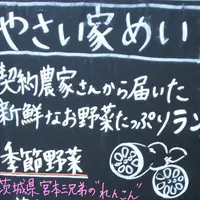 やさい家めい
契約農家さんから届いた
新鮮なお野菜たっぷりラン
季節野菜
茨城県 宮本三兄弟の"れんこん"